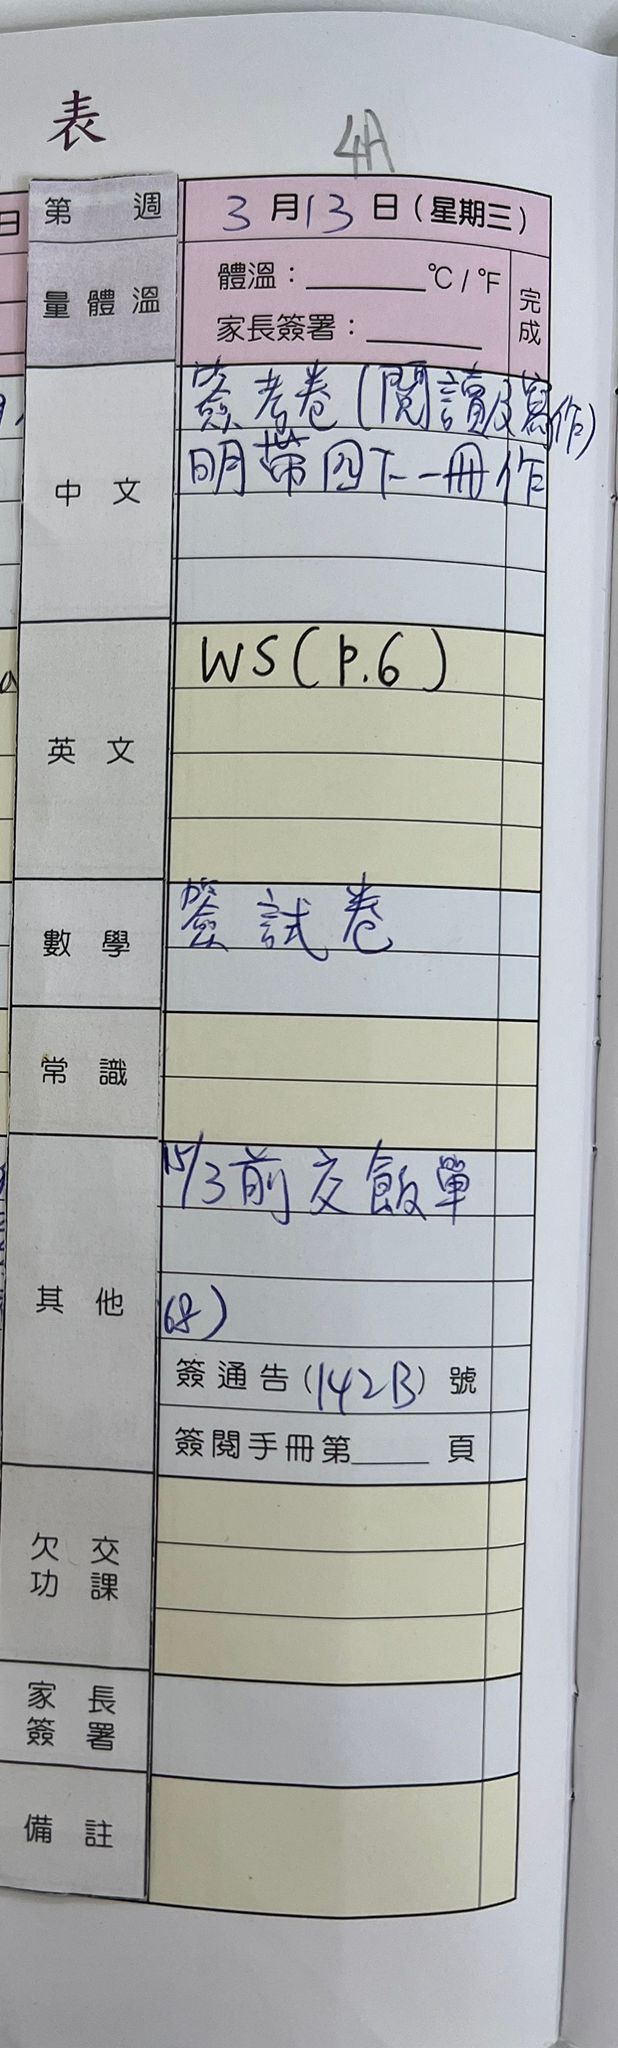 表
4A
第 週
3 月 13 日 (星期三)
日
量體溫
體溫：______ °C / °F
家長簽署：______
完成
中 文
簽考卷(閱讀及寫作)
明帶四下一冊作
英 文
WS(P.6)
數 學
簽試卷
常 識
其 他
15/3前交飯單
68)
簽通告(142B)號
簽閱手冊第____頁
欠 交
功 課
家 長
簽 署
備 註